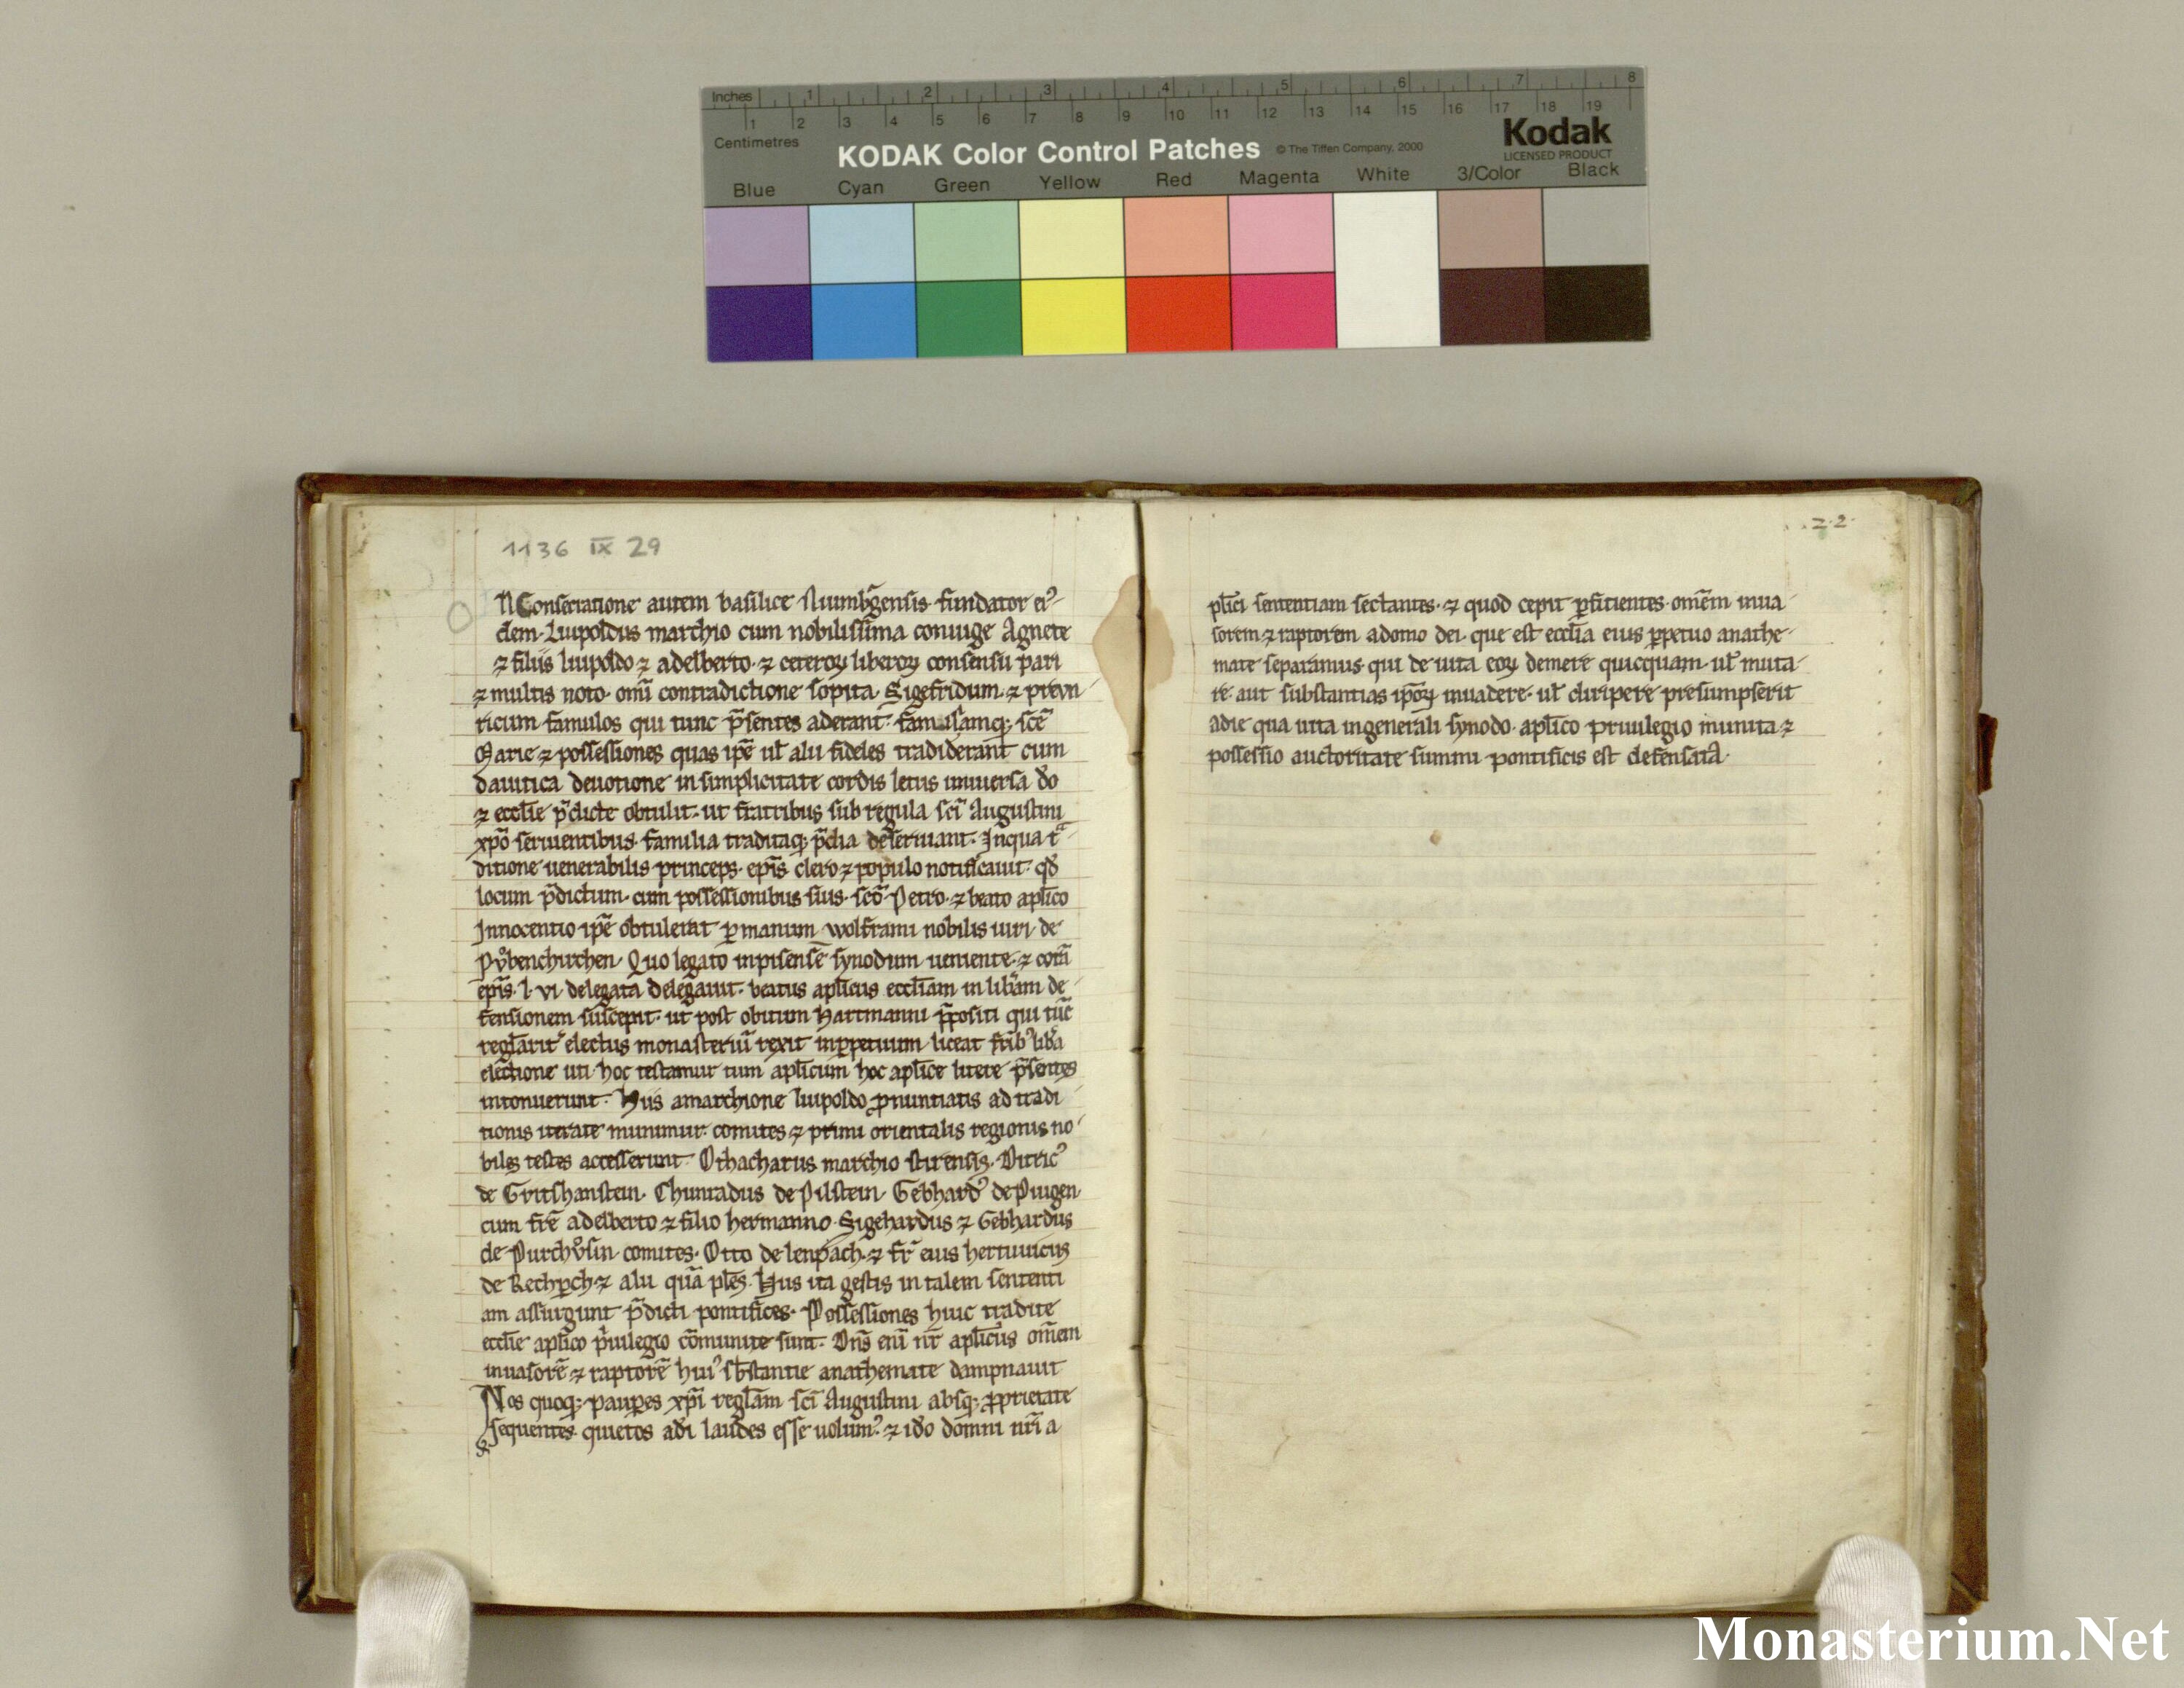 Inches 1 2 3 4 5 6 7 8
1 2 3 4 5 6 7 8 9 10 11 12 13 14 15 16 17 18 19
Centimetres
KODAK Color Control Patches © The Tiffen Company, 2000
Kodak
LICENSED PRODUCT
Blue Cyan Green Yellow Red Magenta White 3/Color Black
1136 IX 29
N Consecratione autem basilice Niumb͛gensis fundator eiꝰ
dem. Liupoldus marchio cum nobilissima coniuge Agnete
⁊ filiis liupoldo ⁊ adelberto. ⁊ ceteroꝝ liberoꝝ consensu pari
⁊ multis noto. om̄i contradictione sopita. Sigefridum. ⁊
ricum famulos qui tunc p̄sentes aderant. sc̄e
Marie ⁊ possessiones quas ip̄e ul̄ alii fideles tradiderant cum
dauitica deuotione in simplicitate cordis letus uniuersa d̄o
⁊ eccl̄ie p̄dicte obtulit. ut fratribus sub regula sc̄i Augustini
xp̄o seruientibus. familia traditaq; p̄dia deseruiant. Inqua tᵃ
ditione uenerabilis princeps. ep̄is clero ⁊ populo notificauit. qd̄
locum p̄dictum. cum possessionibus suis. sc̄o Petro. ⁊ beato ap̄lico
Innocentio ip̄e obtulerat ꝑ manum wolframi nobilis uiri. de
Pͮbenchirchen. Quo legato inpisensē synodum ueniente. ⁊ corā
ep̄is. l. vi. delegata delegauit. beatus ap̄licus eccl̄iam in lib͛am de
fensionem suscepit. ut post obitum Hartmanni p̄positi qui tūc
electus monasteriū rexit inꝑpetuum liceat fr̄ibꝰ lib͛a
electione uti. hoc testamur tum ap̄licum hoc ap̄lice litere p̄sentes
intonuerunt. Hiis amarchione liupoldo ꝓnuntiatis ad tradi
tionis iterate munimur. comites ⁊ primi orientalis regionis no
biles testes accesserunt. Othacharus marchio stirensis. Ditricꝰ
de Chunradus de Pilstein. Gebhardꝰ de Piugen
cum fr̄e adelberto ⁊ filio hermanno. Sigehardus ⁊ Gebhardus
de Purchͮsin comites. Otto de lenpach. ⁊ fr̄ eius hertuuicus
de ⁊ alii quā pl̄es. Hiis ita gestis in talem sententi
am assurgunt p̄dicti pontifices. Possessiones huic tradite
eccl̄ie ap̄lico pͥuilegio cōmunite sunt. Dn̄s eni nr̄ ap̄licus om̄em
inuasorē ⁊ raptorē huiꝰ sb̄stantie anathemate dampnauit
Nos quoq; pauꝑes xp̄i regl̄am sc̄i Augustini absq; ꝓprietate
sequentes. quietos ad̄i laudes esse uolumꝰ. ⁊ id̄o domni nr̄i a
.22.
pl̄ici sententiam sectantes. ⁊ quod cepit ꝑficientes. om̄em inua
sorem ⁊ raptorem adomo dei. que est eccl̄ia eius ꝑpetuo anathe
mate separamus. qui de uita eoꝝ demere quicquam. ul̄ muta
re. aut substantias ip̄oꝝ inuadere. ul̄ diripere presumpserit
adie qua uita ingenerali synodo. ap̄lico priuilegio munita ⁊
possessio auctoritate summi pontificis est defensata.
Monasterium.Net